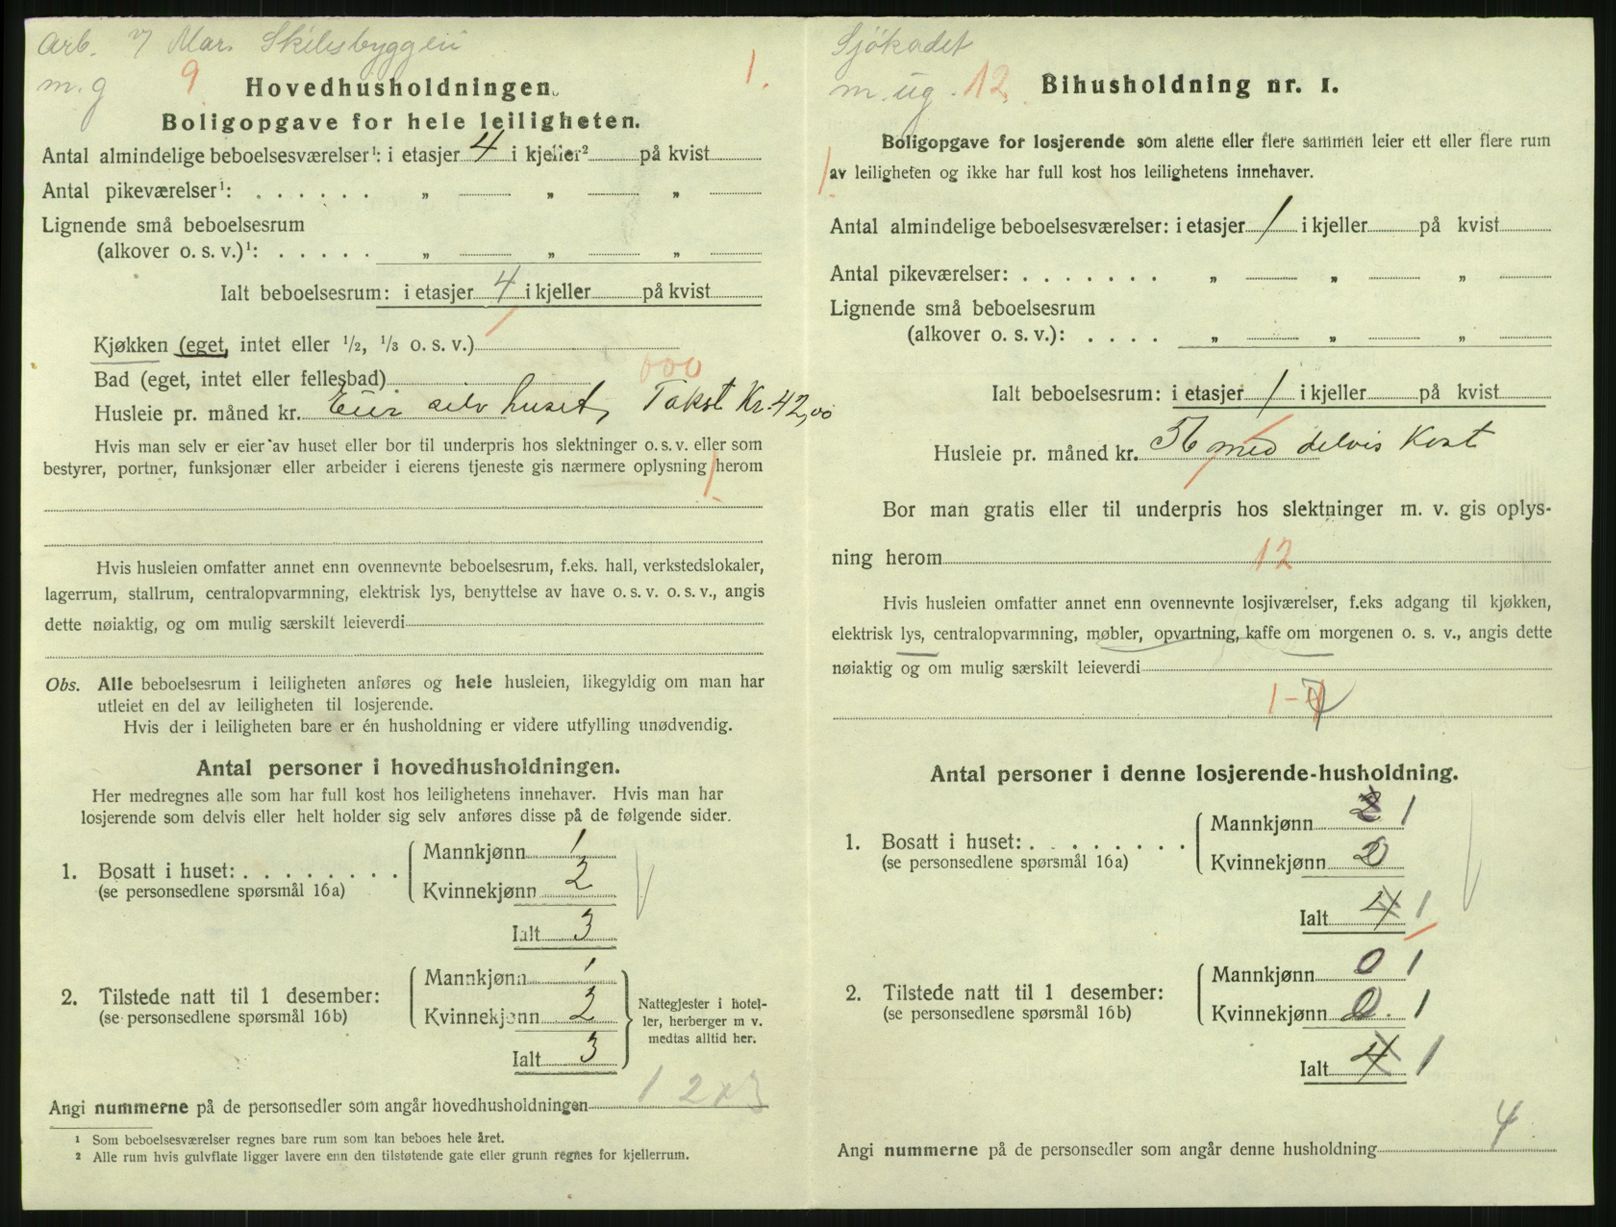 Arb. v/ Mar. Skibsbyggeri
m.g 9 1.
Hovedhusholdningen.
Boligopgave for hele leiligheten.
Antal almindelige beboelsesværelser¹: i etasjer 4 i kjeller² på kvist
Antal pikeværelser¹: . . . . . . „ „ „
Lignende små beboelsesrum
(alkover o. s. v.)¹: . . . . . „ „ „
Ialt beboelsesrum: i etasjer 4 i kjeller på kvist
Kjøkken (eget, intet eller ½, ⅓ o. s. v.)
Bad (eget, intet eller fellesbad) 000
Husleie pr. måned kr. Eier selv huset, Takst Kr. 42,00
Hvis man selv er eier av huset eller bor til underpris hos slektninger o. s. v. eller som
bestyrer, portner, funksjonær eller arbeider i eierens tjeneste gis nærmere oplysning herom
Hvis husleien omfatter annet enn ovennevnte beboelsesrum, f.eks. hall, verkstedslokaler,
lagerrum, stallrum, centralopvarmning, elektrisk lys, benyttelse av have o. s. v. o. s. v., angis
dette nøiaktig, og om mulig særskilt leieverdi
Obs. Alle beboelsesrum i leiligheten anføres og hele husleien, likegyldig om man har
utleiet en del av leiligheten til losjerende.
Hvis der i leiligheten bare er én husholdning er videre utfylling unødvendig.
Antal personer i hovedhusholdningen.
Her medregnes alle som har full kost hos leilighetens innehaver. Hvis man har
losjerende som delvis eller helt holder sig selv anføres disse på de følgende sider.
Mannkjønn 1
1. Bosatt i huset: . . . . . . . .
(se personsedlene spørsmål 16a)
Kvinnekjønn 2
Ialt 3
Mannkjønn 1
2. Tilstede natt til 1 desember:
(se personsedlene spørsmål 16b)
Kvinnekjønn 2
Ialt 3
Nattegjester i hotel-
ler, herberger m v.
medtas alltid her.
Angi nummerne på de personsedler som angår hovedhusholdningen 1 2 x 3
¹ Som beboelsesværelser regnes bare rum som kan beboes hele året.
² Alle rum hvis gulvflate ligger lavere enn den tilstøtende gate eller grunn regnes for kjellerrum.
Sjökadet
m. ug. 12
Bihusholdning nr. 1.
Boligopgave for losjerende som alene eller flere sammen leier ett eller flere rum
av leiligheten og ikke har full kost hos leilighetens innehaver.
Antal almindelige beboelsesværelser: i etasjer 1 i kjeller på kvist
Antal pikeværelser: . . . . . . . „ „ „
Lignende små beboelsesrum
(alkover o. s. v.): . . . . „ „ „
Ialt beboelsesrum: i etasjer 1 i kjeller på kvist
Husleie pr. måned kr. 56 med delvis Kost
Bor man gratis eller til underpris hos slektninger m. v. gis oplys-
ning herom 12
Hvis husleien omfatter annet enn ovennevnte losjiværelser, f.eks adgang til kjøkken,
elektrisk lys, centralopvarmning, møbler, opvartning, kaffe om morgenen o. s. v., angis dette
nøiaktig og om mulig særskilt leieverdi
Antal personer i denne losjerende-husholdning.
Mannkjønn 2 1
1. Bosatt i huset: . . . . . . . .
(se personsedlene spørsmål 16a)
Kvinnekjønn 0
Ialt 4 1
Mannkjønn 0 1
2. Tilstede natt til 1 desember:
(se personsedlene spørsmål 16b)
Kvinnekjønn 0. 1
Ialt 4 1
Angi nummerne på de personsedler som angår denne husholdning 4